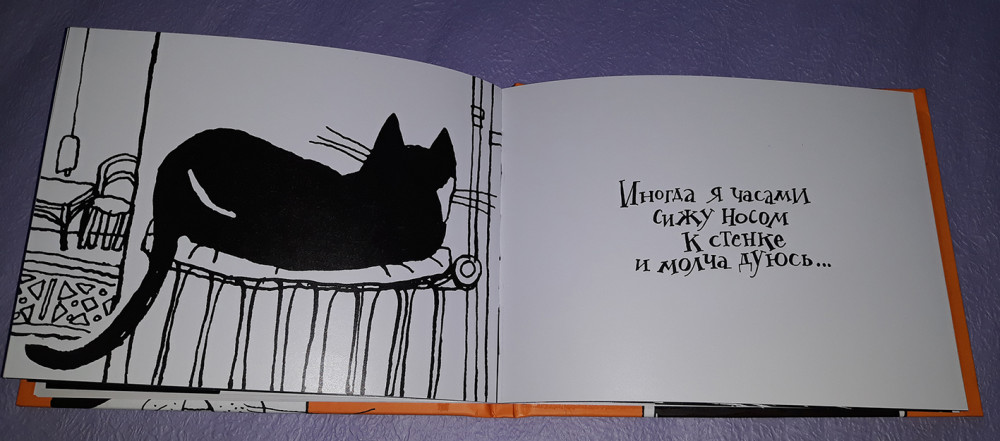 Иногда я часами
сижу носом
к стенке
и молча дуюсь...